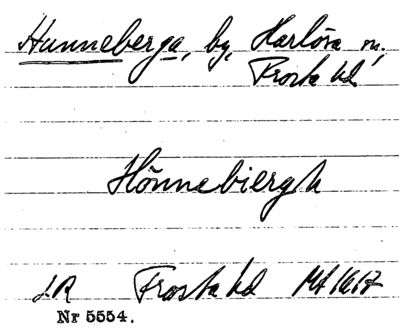 Hunneberga, by, Harlösa sn,
Frosta hd
Hönnebiergh
J.R Frosta hd Mt 1617
Nr 5554.